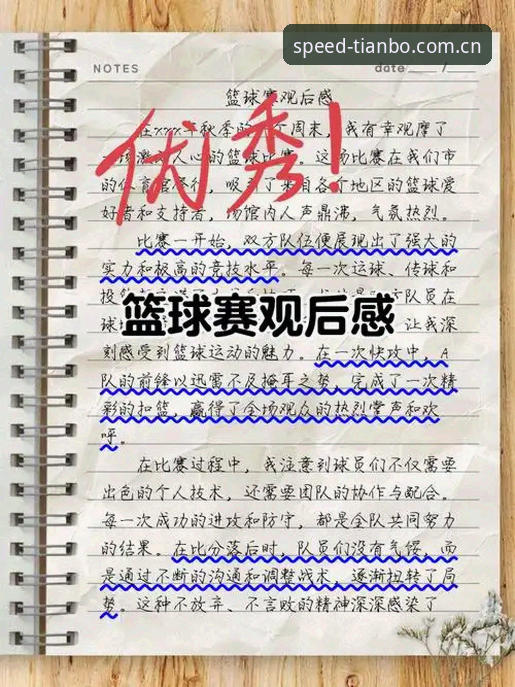 speed-tianbo.com.cn
NOTES
date / /
篮球赛观后感
在xxx年秋季的 个周末，我有幸观摩了
人心的篮球比赛。这场比赛在我们市
的体育馆举行，吸 了来自各个地区的篮球爱
好者和支持者，场馆内人声鼎沸，气氛热烈。
优秀！
比赛一开始，双方队伍便展现出了强大的
实力和极高的竞技水平。每一次运球、传球和
投 队员在
篮球赛观后感
球 让我深
刻感受到篮球运动的魅力。在一次快攻中，A
队的前锋以迅雷不及掩耳之势，完成了一次精
彩的扣篮，赢得了全场观众的热烈掌声和欢
呼。
在比赛过程中，我注意到球员们不仅需要
出色的个人技术，还需要团队的协作与配合。
每一次成功的进攻和防守，都是全队共同努力
的结果。在比分落后时，队员们没有气馁，而
是通过不断的沟通和调整战术，逐渐扭转了局
势。这种不放弃、不言败的精神深深感染了